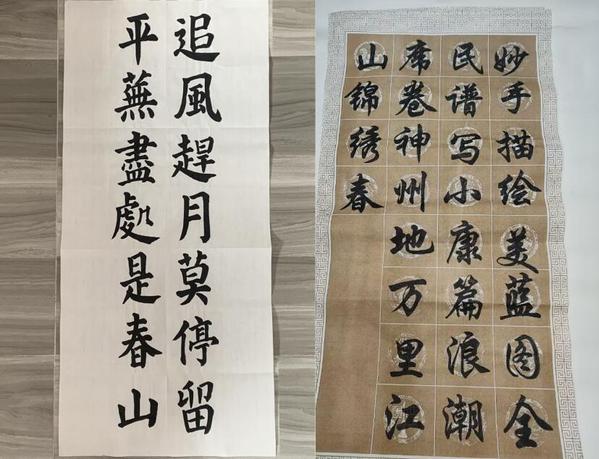 追風趕月莫停留
平蕪盡處是春山
妙手描绘美蓝图全
民谱写小康篇浪潮
席卷神州地万里江
山锦绣春